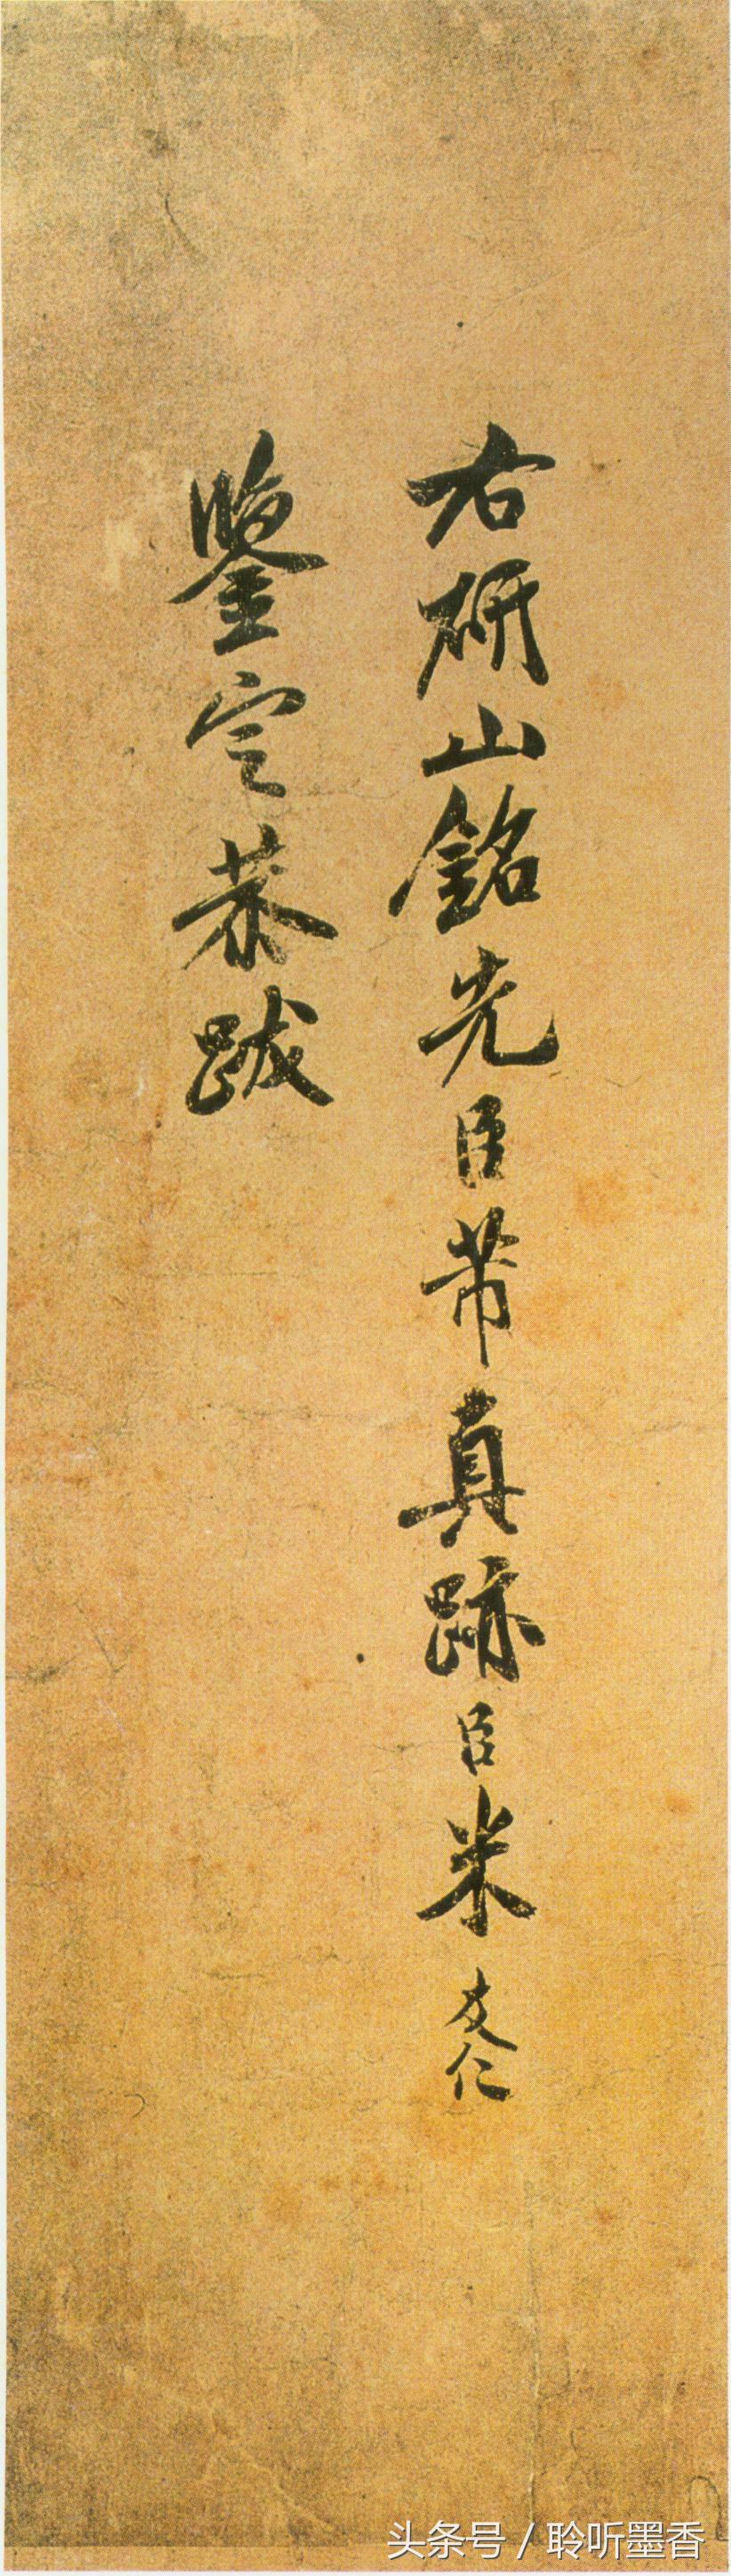 右研山銘先臣芾真跡臣米友仁
鑒定恭跋
头条号 / 聆听墨香